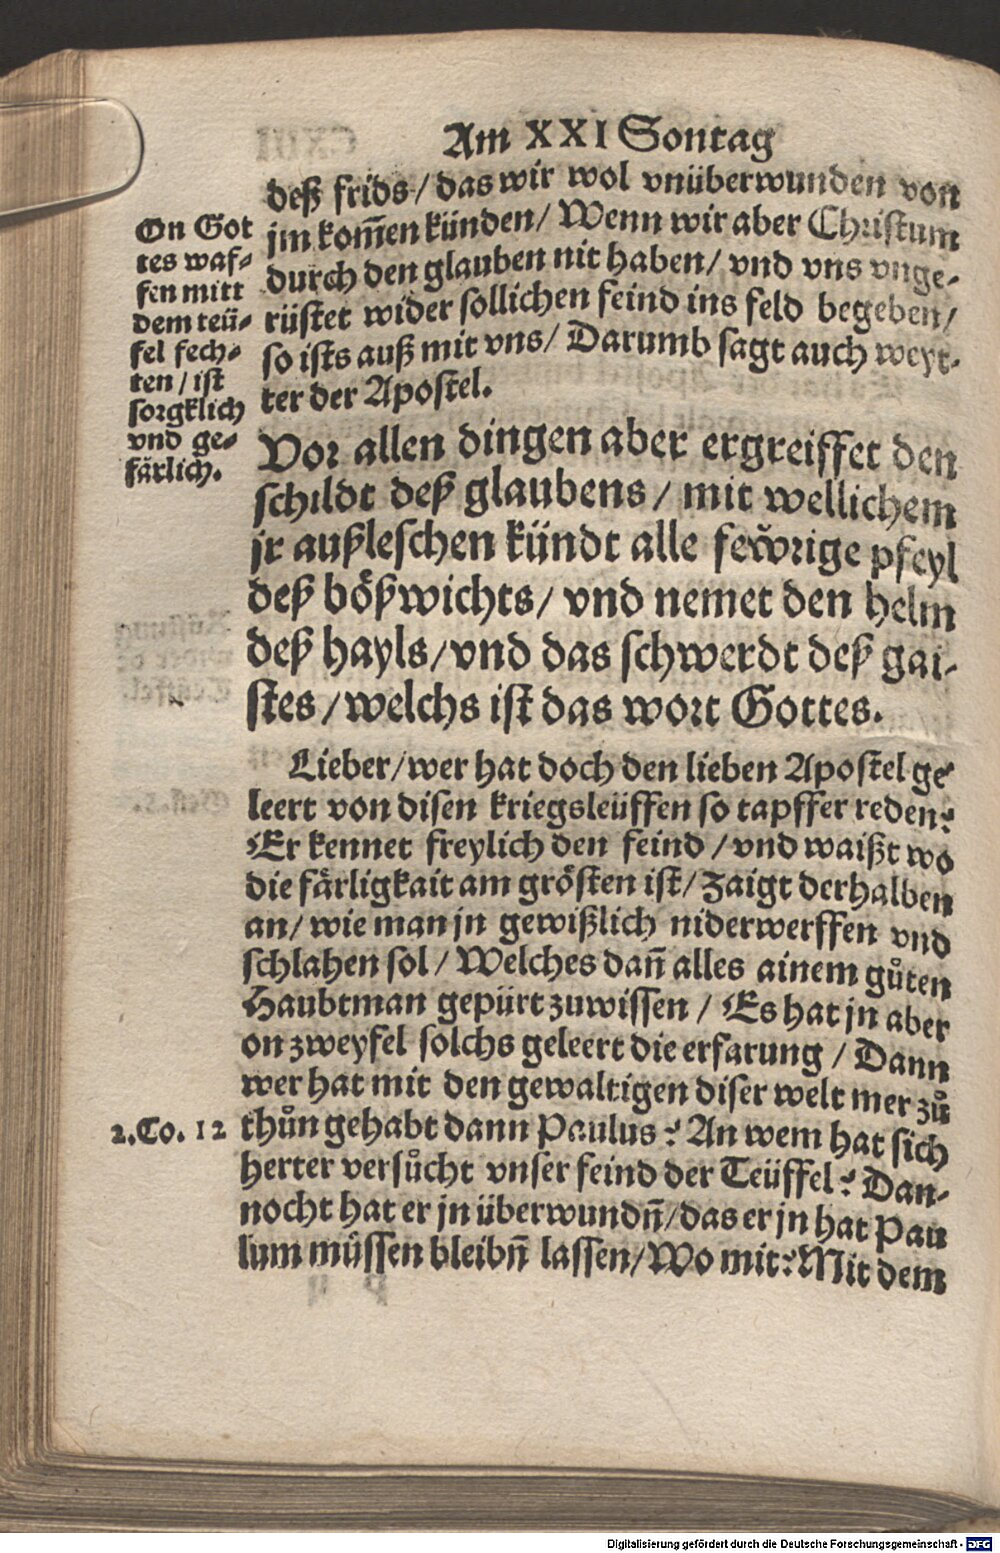 Am XXI Sontag
deß frids / das wir wol vnüberwunden von
jm kom̄en künden / Wenn wir aber Christum
durch den glauben nit haben / vnd vns vnge⸗
rüstet wider sollichen feind ins feld begeben /
so ists auß mit vns / Darumb sagt auch weyt⸗
ter der Apostel.
On Got
tes waf⸗
fen mitt
dem teü⸗
fel fech⸗
ten / ist
sorgklich
vnd ge⸗
färlich.
Vor allen dingen aber ergreiffet den
schildt deß glaubens / mit wellichem
jr außleschen kündt alle feẘrige pfeyl
deß bößwichts / vnd nemet den helm
deß hayls / vnd das schwerdt deß gai⸗
stes / welchs ist das wort Gottes.
Lieber / wer hat doch den lieben Apostel ge⸗
leert von disen kriegsleüffen so tapffer reden?
Er kennet freylich den feind / vnd waißt wo
die färligkait am grösten ist / zaigt derhalben
an / wie man jn gewißlich niderwerffen vnd
schlahen sol / Welches dan̄ alles ainem gůten
Haubtman gepürt zuwissen / Es hat jn aber
on zweyfel solchs geleert die erfarung / Dann
wer hat mit den gewaltigen diser welt mer zů
thůn gehabt dann Paulus? An wem hat sich
2.Co. 12
herter versůcht vnser feind der Teüffel? Dan⸗
nocht hat er jn überwundn̄ / das er jn hat Pau
lum müssen bleibn̄ lassen / Wo mit? Mit dem
Digitalisierung gefördert durch die Deutsche Forschungsgemeinschaft - DFG